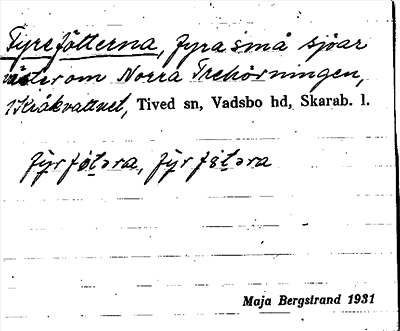 Fyrefötterna, fyra små sjöar
väster om Norra Trehörningen,
i Kråkvattnet, Tived sn, Vadsbo hd, Skarab. l.
fy̱rføt̲əra, fy̱rføt̲əra
Maja Bergstrand 1931